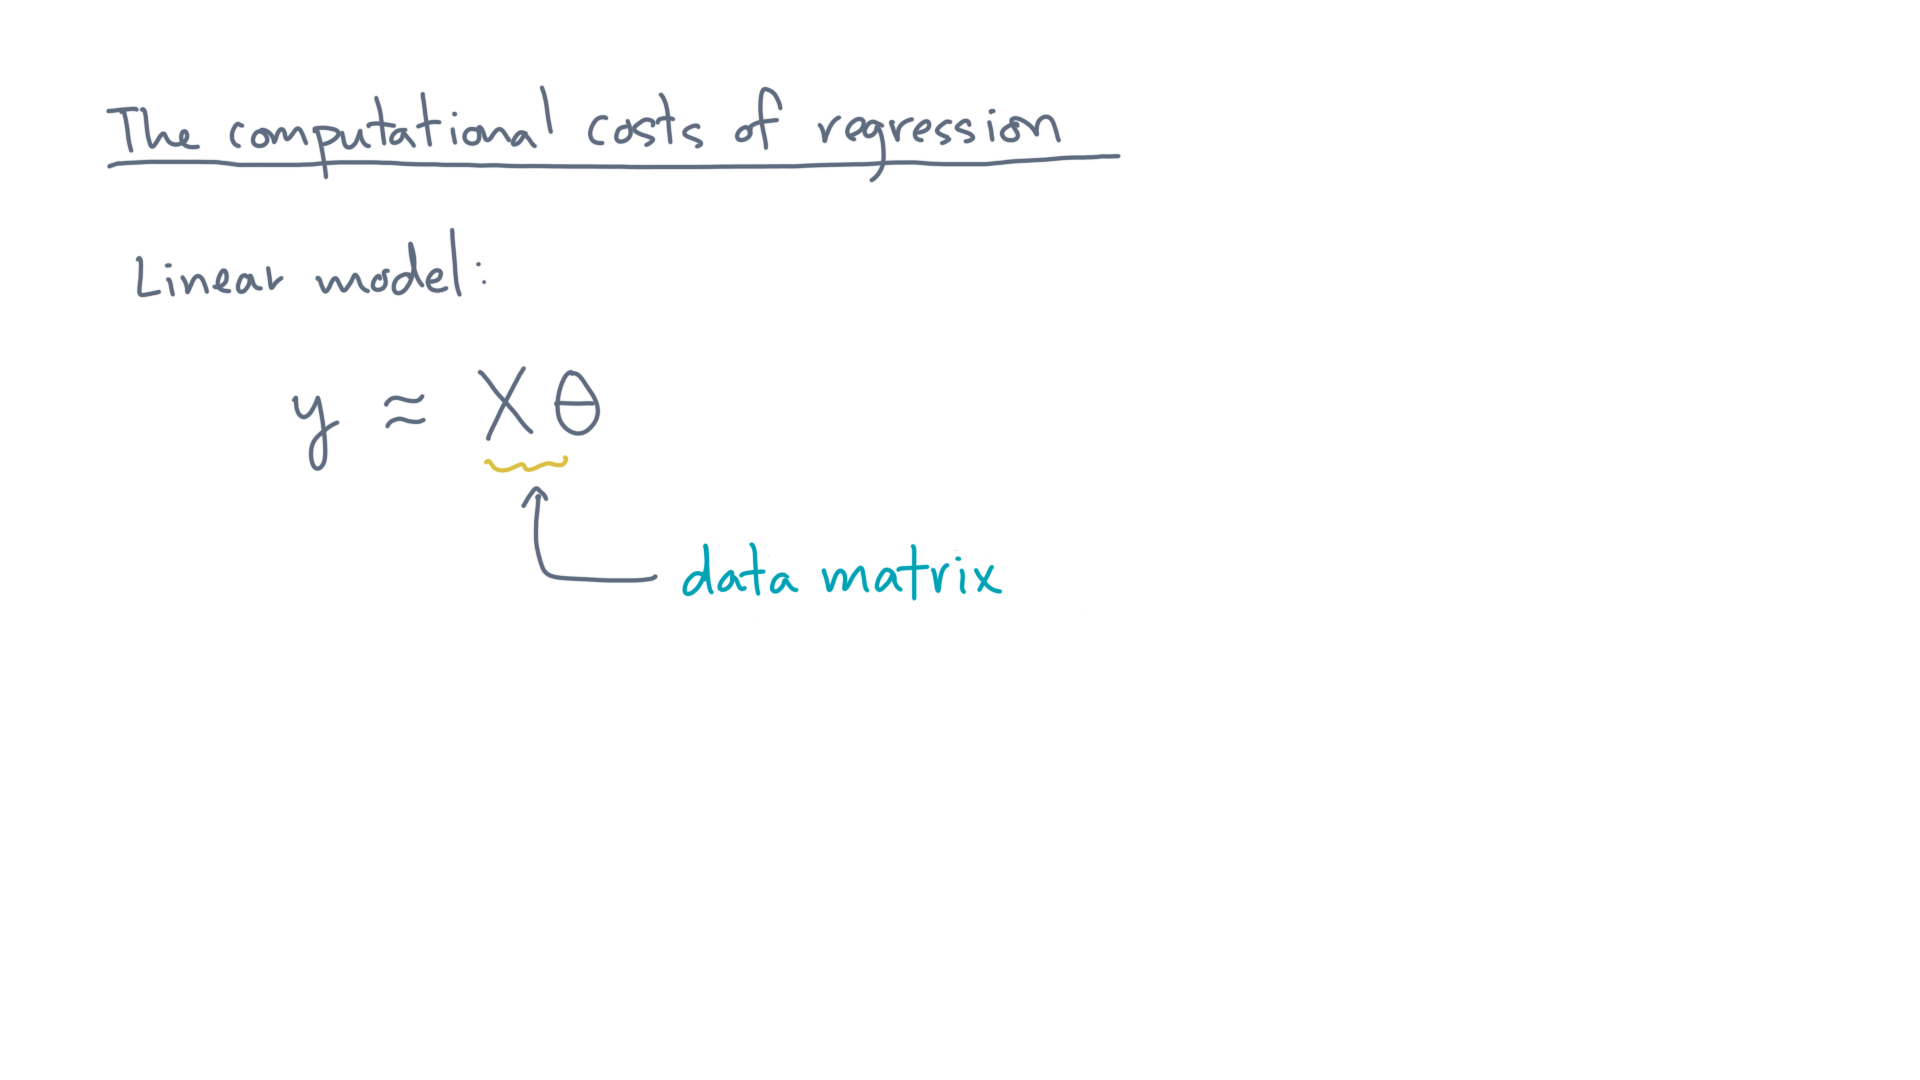 The computational costs of regression
Linear model:
y ≈ Xθ
data matrix